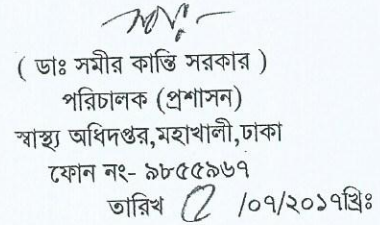 ( ডাঃ সমীর কান্তি সরকার )
পরিচালক (প্রশাসন)
স্বাস্থ্য অধিদপ্তর,মহাখালী,ঢাকা
ফোন নং- ৯৮৫৫৯৬৭
তারিখ /০৭/২০১৭খ্রিঃ